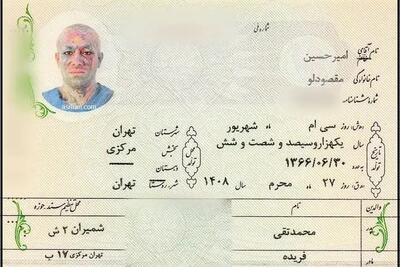 شماره ملی
نام آقای امیرحسین
نام خانوادگی مقصودلو
شماره شناسنامه
تاریخ تولد
ه‍.ش: روز سی ام ماه شهریور
سال یکهزاروسیصد و شصت و شش
۱۳۶۶/۰۶/۳۰
ه‍.ق: روز ۲۷ ماه محرم سال ۱۴۰۸
محل تولد
شهرستان تهران
بخش مرکزی
دهستان ــ
شهر-روستا تهران
والدین
نام
محمدتقی
مادر فریده
محل تنظیم سند-حوزه
شمیران ۲ ش
تهران مرکزی ۱۷ ب
asriran.com